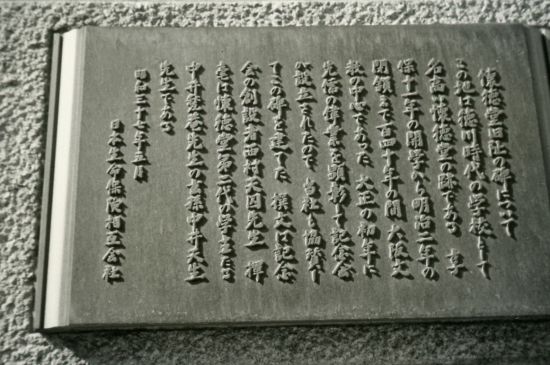 懐徳堂旧阯の碑について
この地は徳川時代の学校として
名高い懐徳堂の跡である 享
保十一年の開学から明治二年の
閉鎖まで百四十年の間 大阪文
教の中心であった 大正の初年に
先儒の偉業を顕彰して記念会
が設立されたので 当社も協力し
てこの碑を建てた 撰文は記念
会の創設者西村天囚先生 揮
毫は懐徳堂第二代の学主たる
中井甃菴先生の玄孫中井天生
先生である
昭和三十七年五月
日本生命保険相互会社